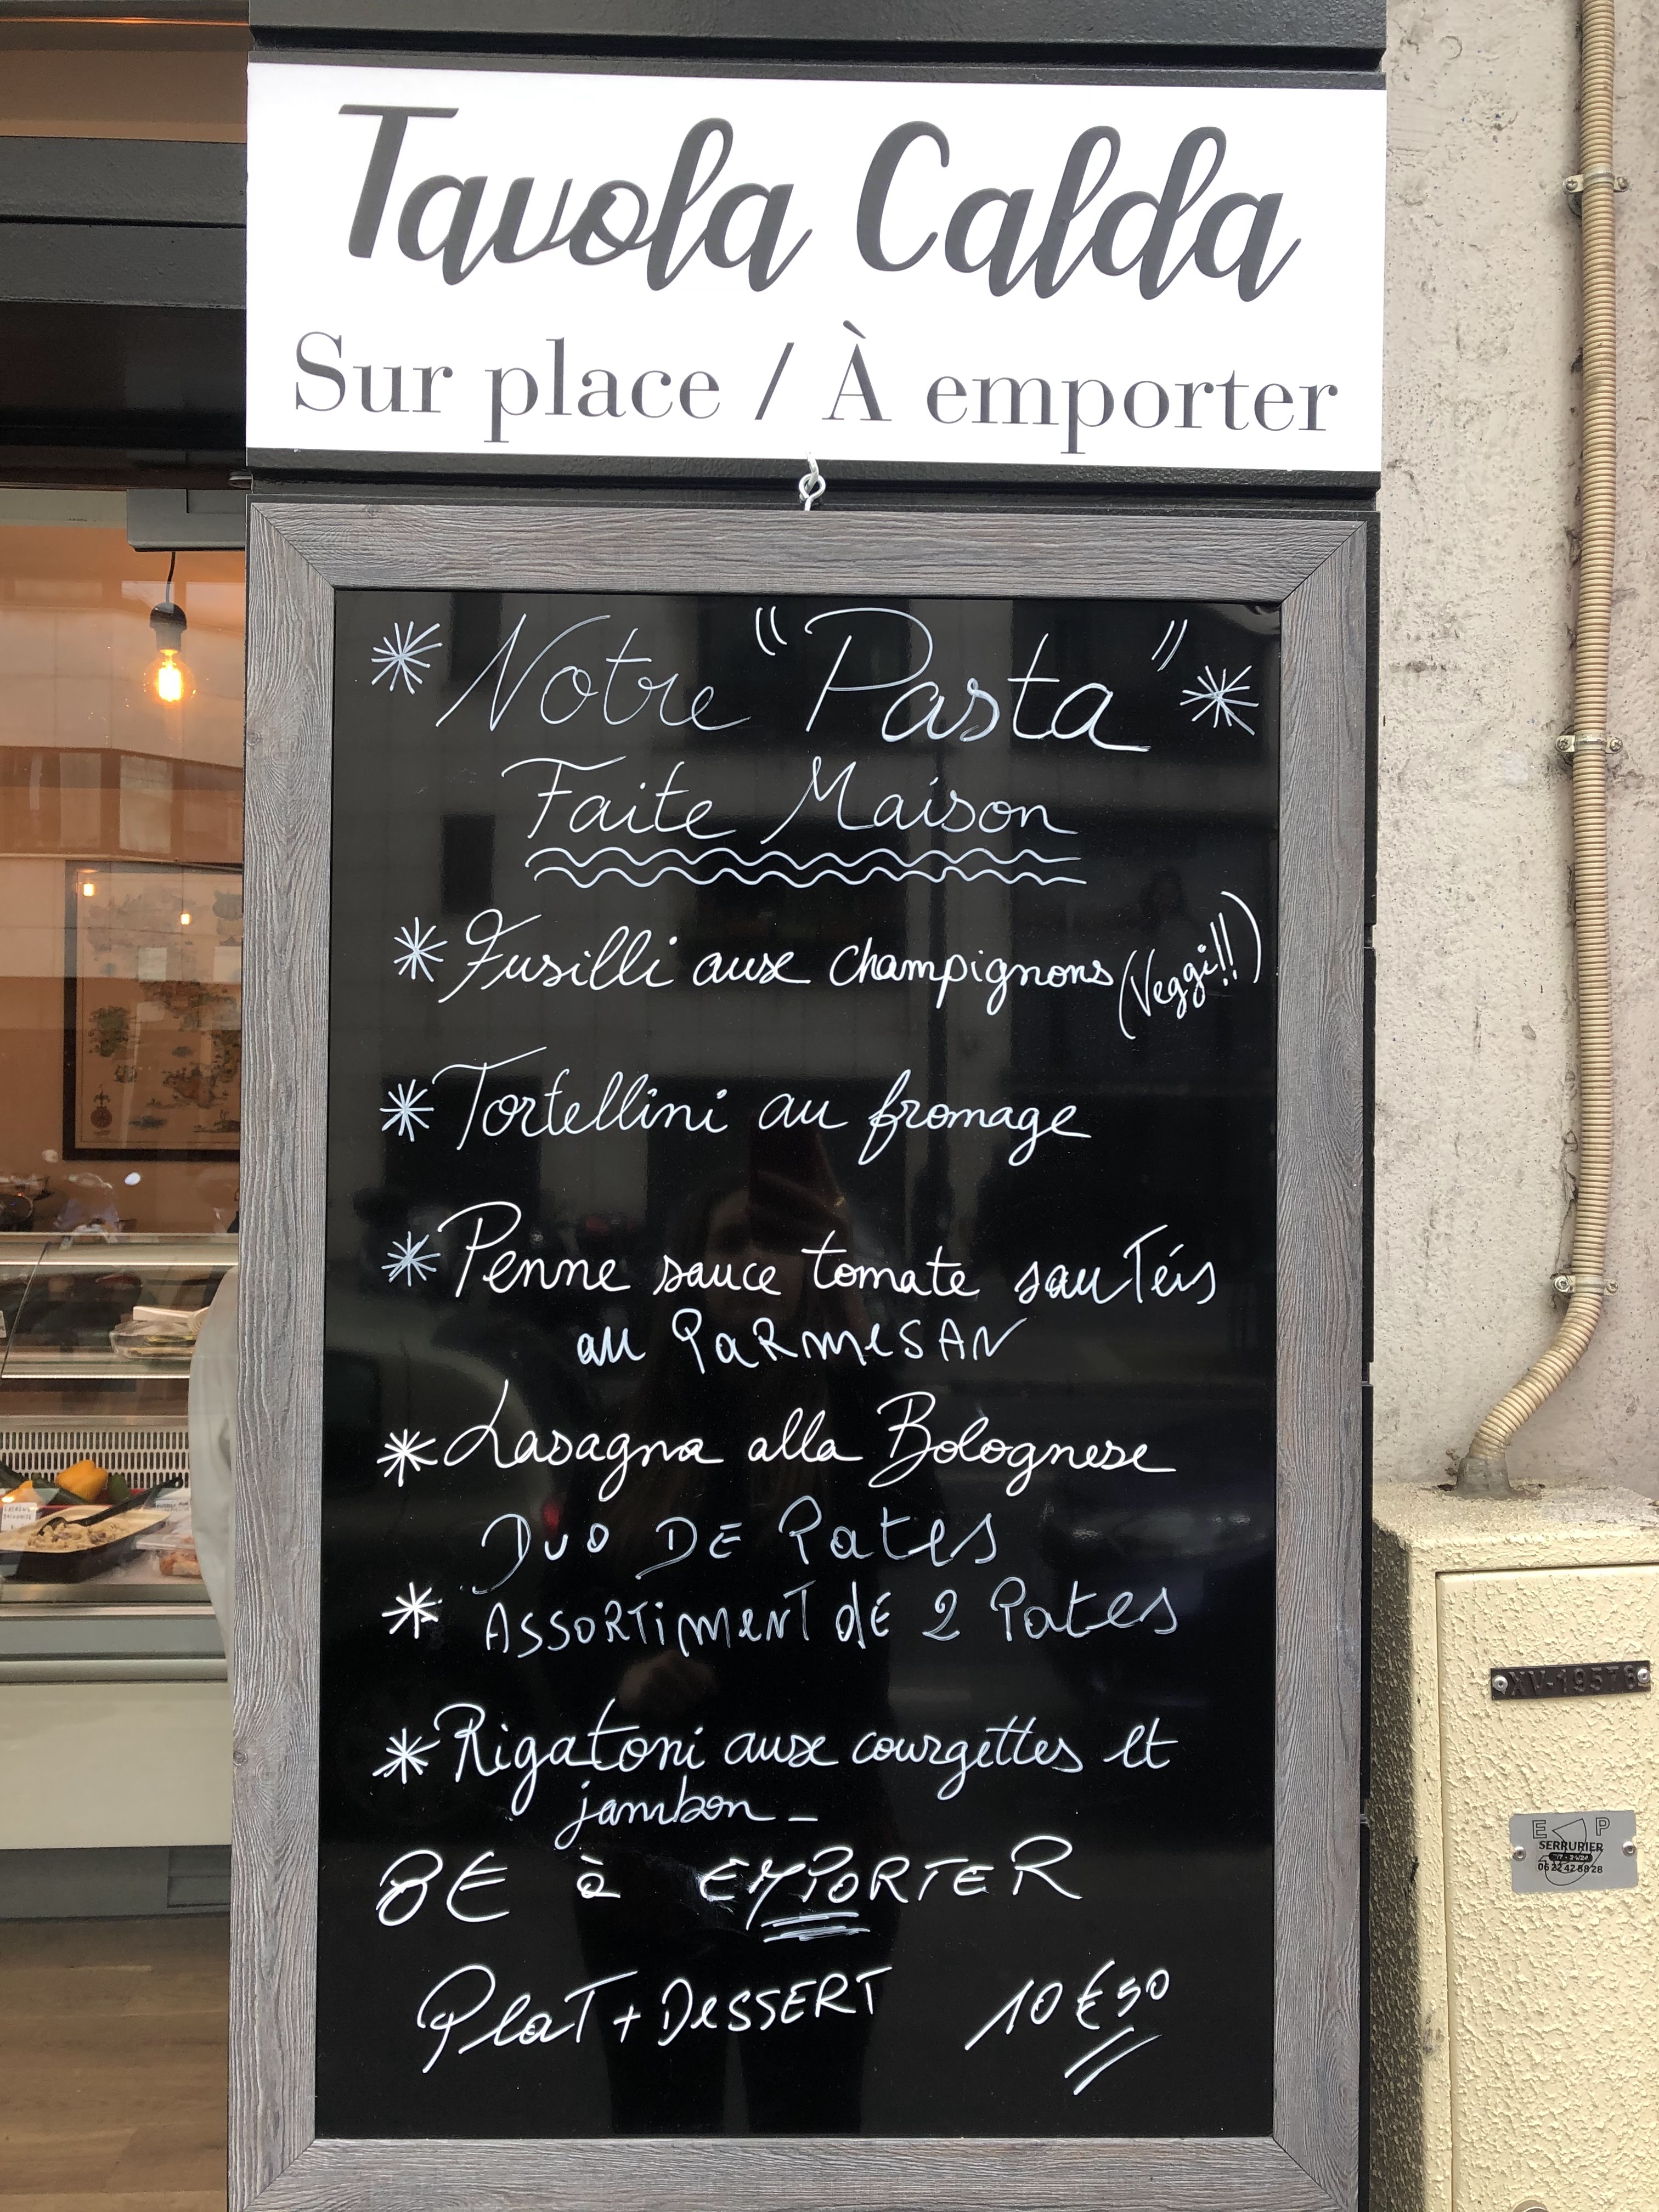 Tavola Calda
Sur place / À emporter
* Notre "Pasta" *
Faite Maison
* Fusilli aux champignons (Veggi!!)
* Tortellini au fromage
* Penne sauce tomate sautéis
au PaRmeSAN
* Lasagna alla Bolognese
Duo DE Pates
* ASSORTiMeNT dE 2 Pates
* Rigatoni aux courgettes et
jambon_
8€ à EMPORTER
PlaT + DeSSERT 10€50
XV-19578
E P
SERRURIER
06 22 42 88 28